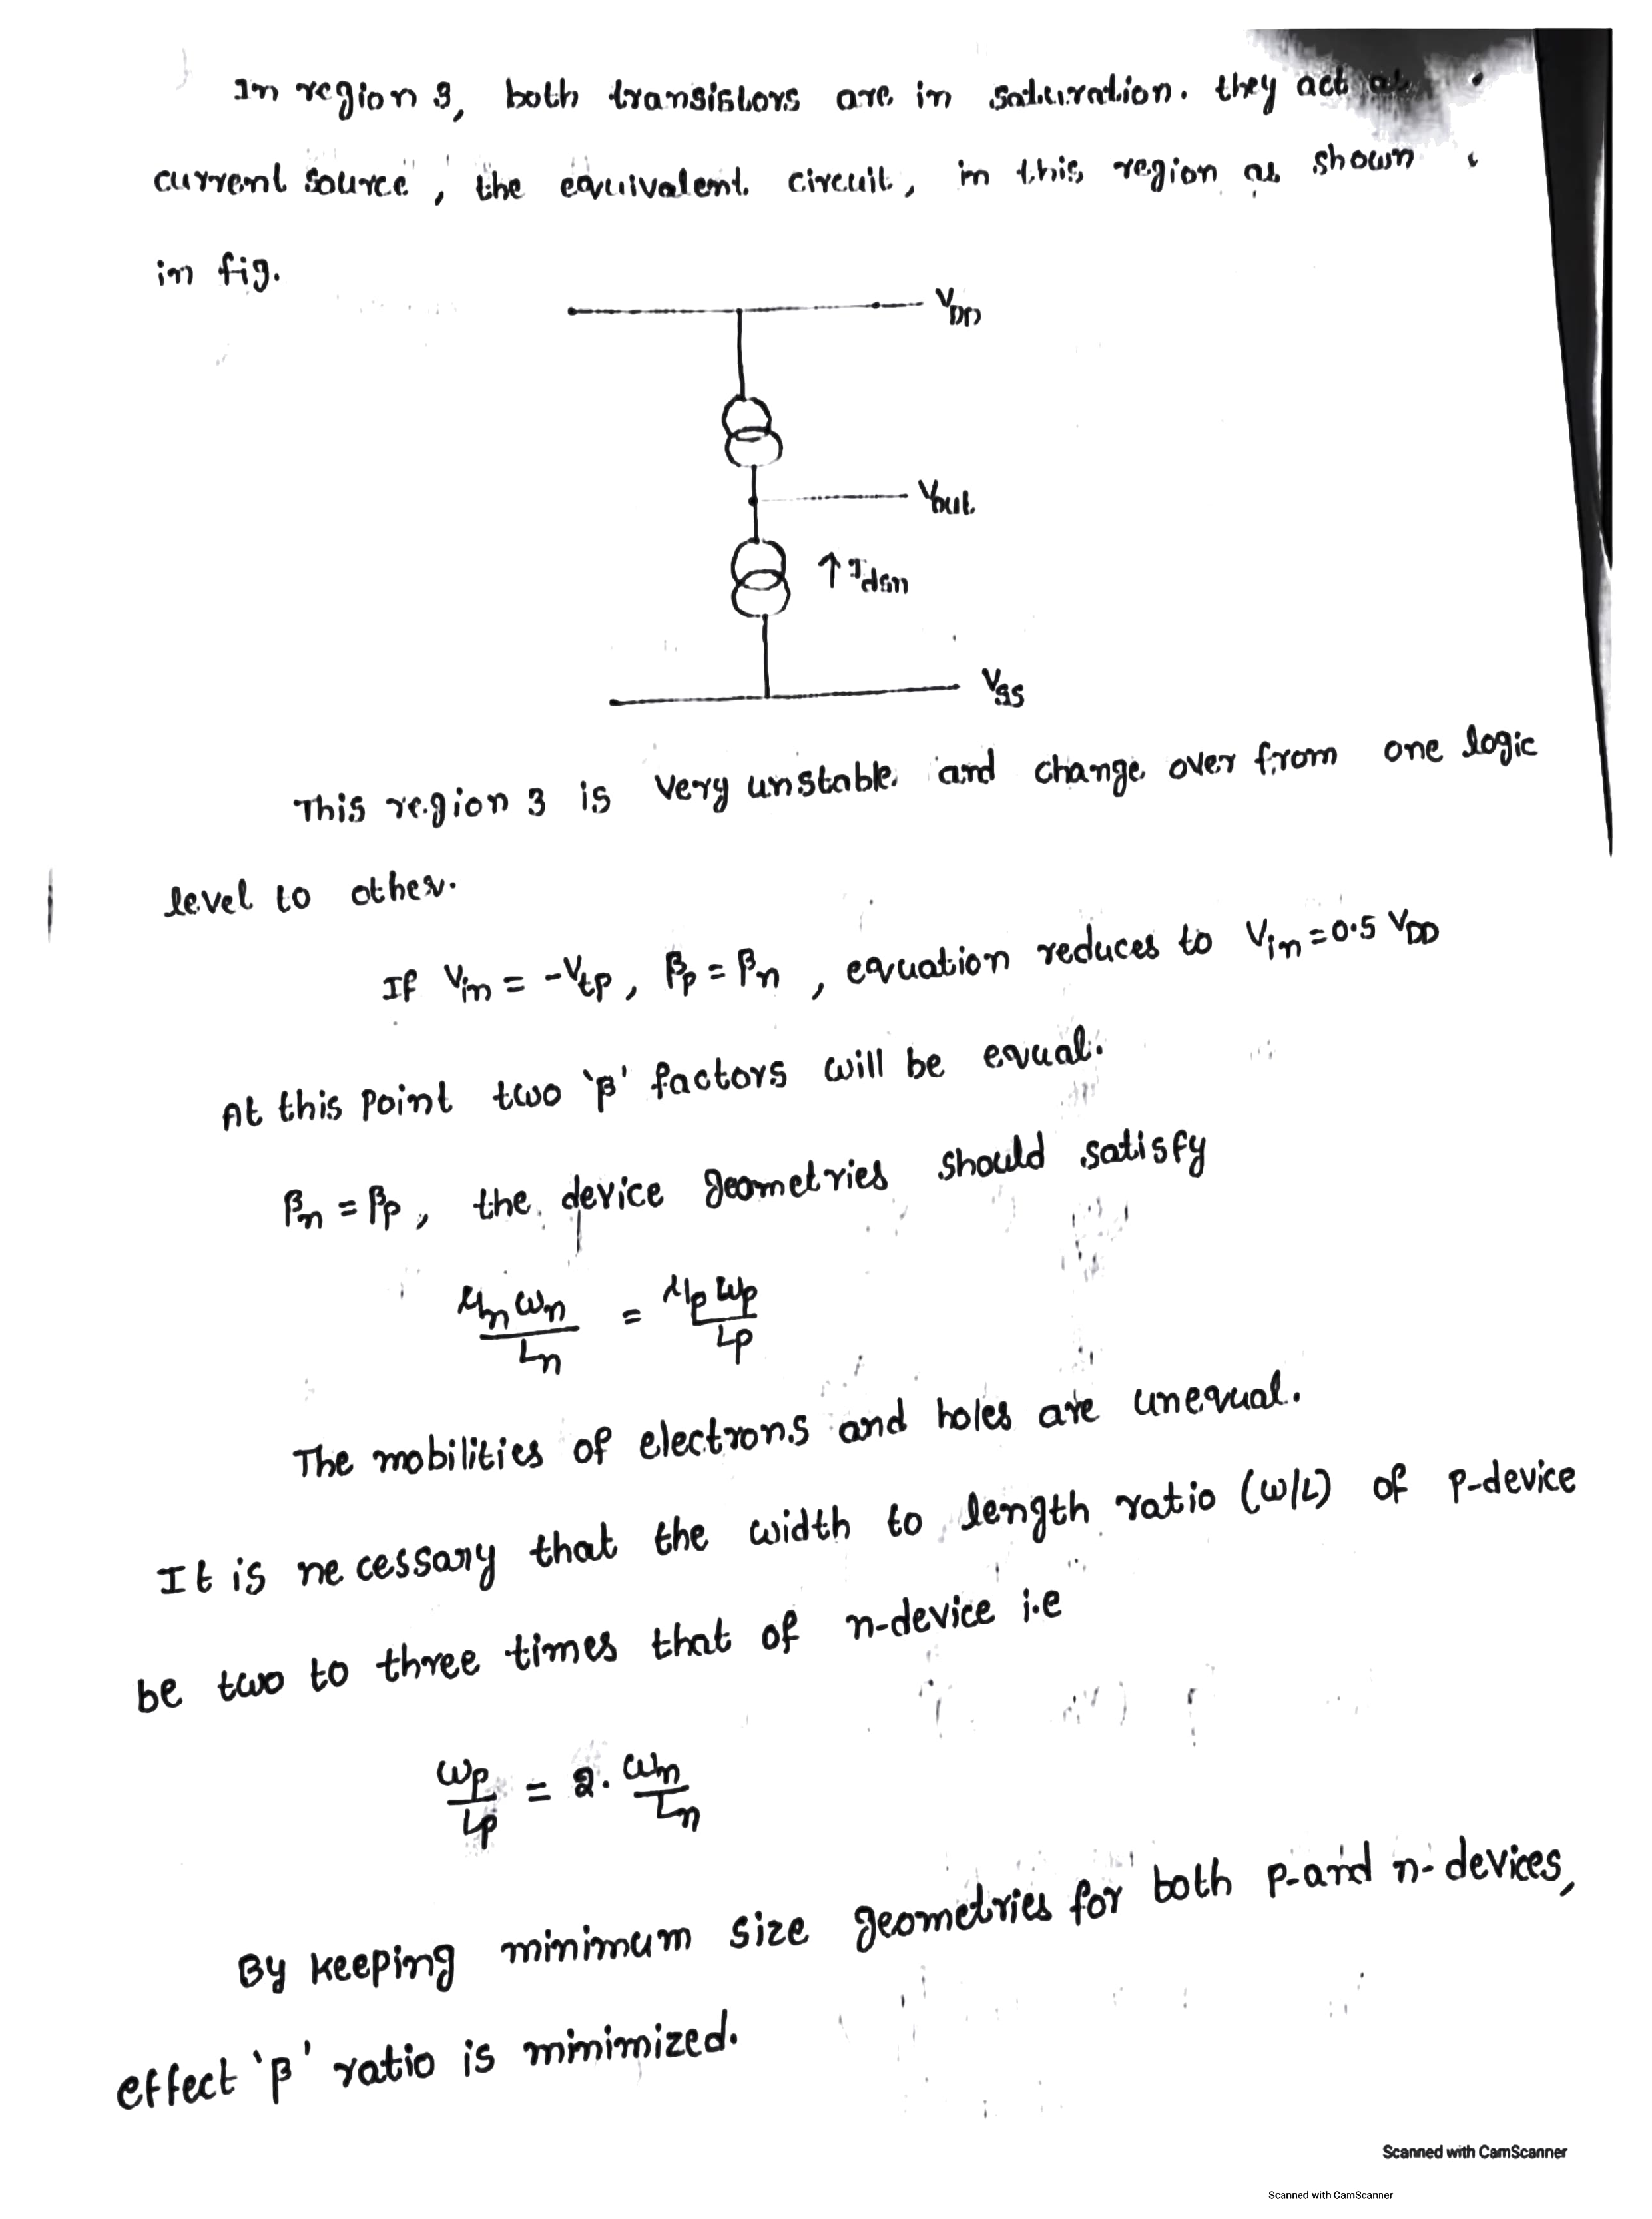 In region 3, both transistors are in saturation. they act as
current source, the equivalent circuit, in this region as shown
in fig.
VDD
Vout
↑Idsn
VSS
This region 3 is very unstable and change over from one logic
level to other.
If Vin = -Vtp, βp = βn, equation reduces to Vin = 0.5 VDD
At this point two 'β' factors will be equal.
βn = βp, the device geometries should satisfy
μn ωn / Ln = μp ωp / Lp
The mobilities of electrons and holes are unequal.
It is ne cessary that the width to length ratio (ω/L) of p-device
be two to three times that of n-device i.e
ωp / Lp = 2. ωn / Ln
By keeping minimum size geometries for both p-and n-devices,
effect 'β' ratio is minimized.
Scanned with CamScanner
Scanned with CamScanner